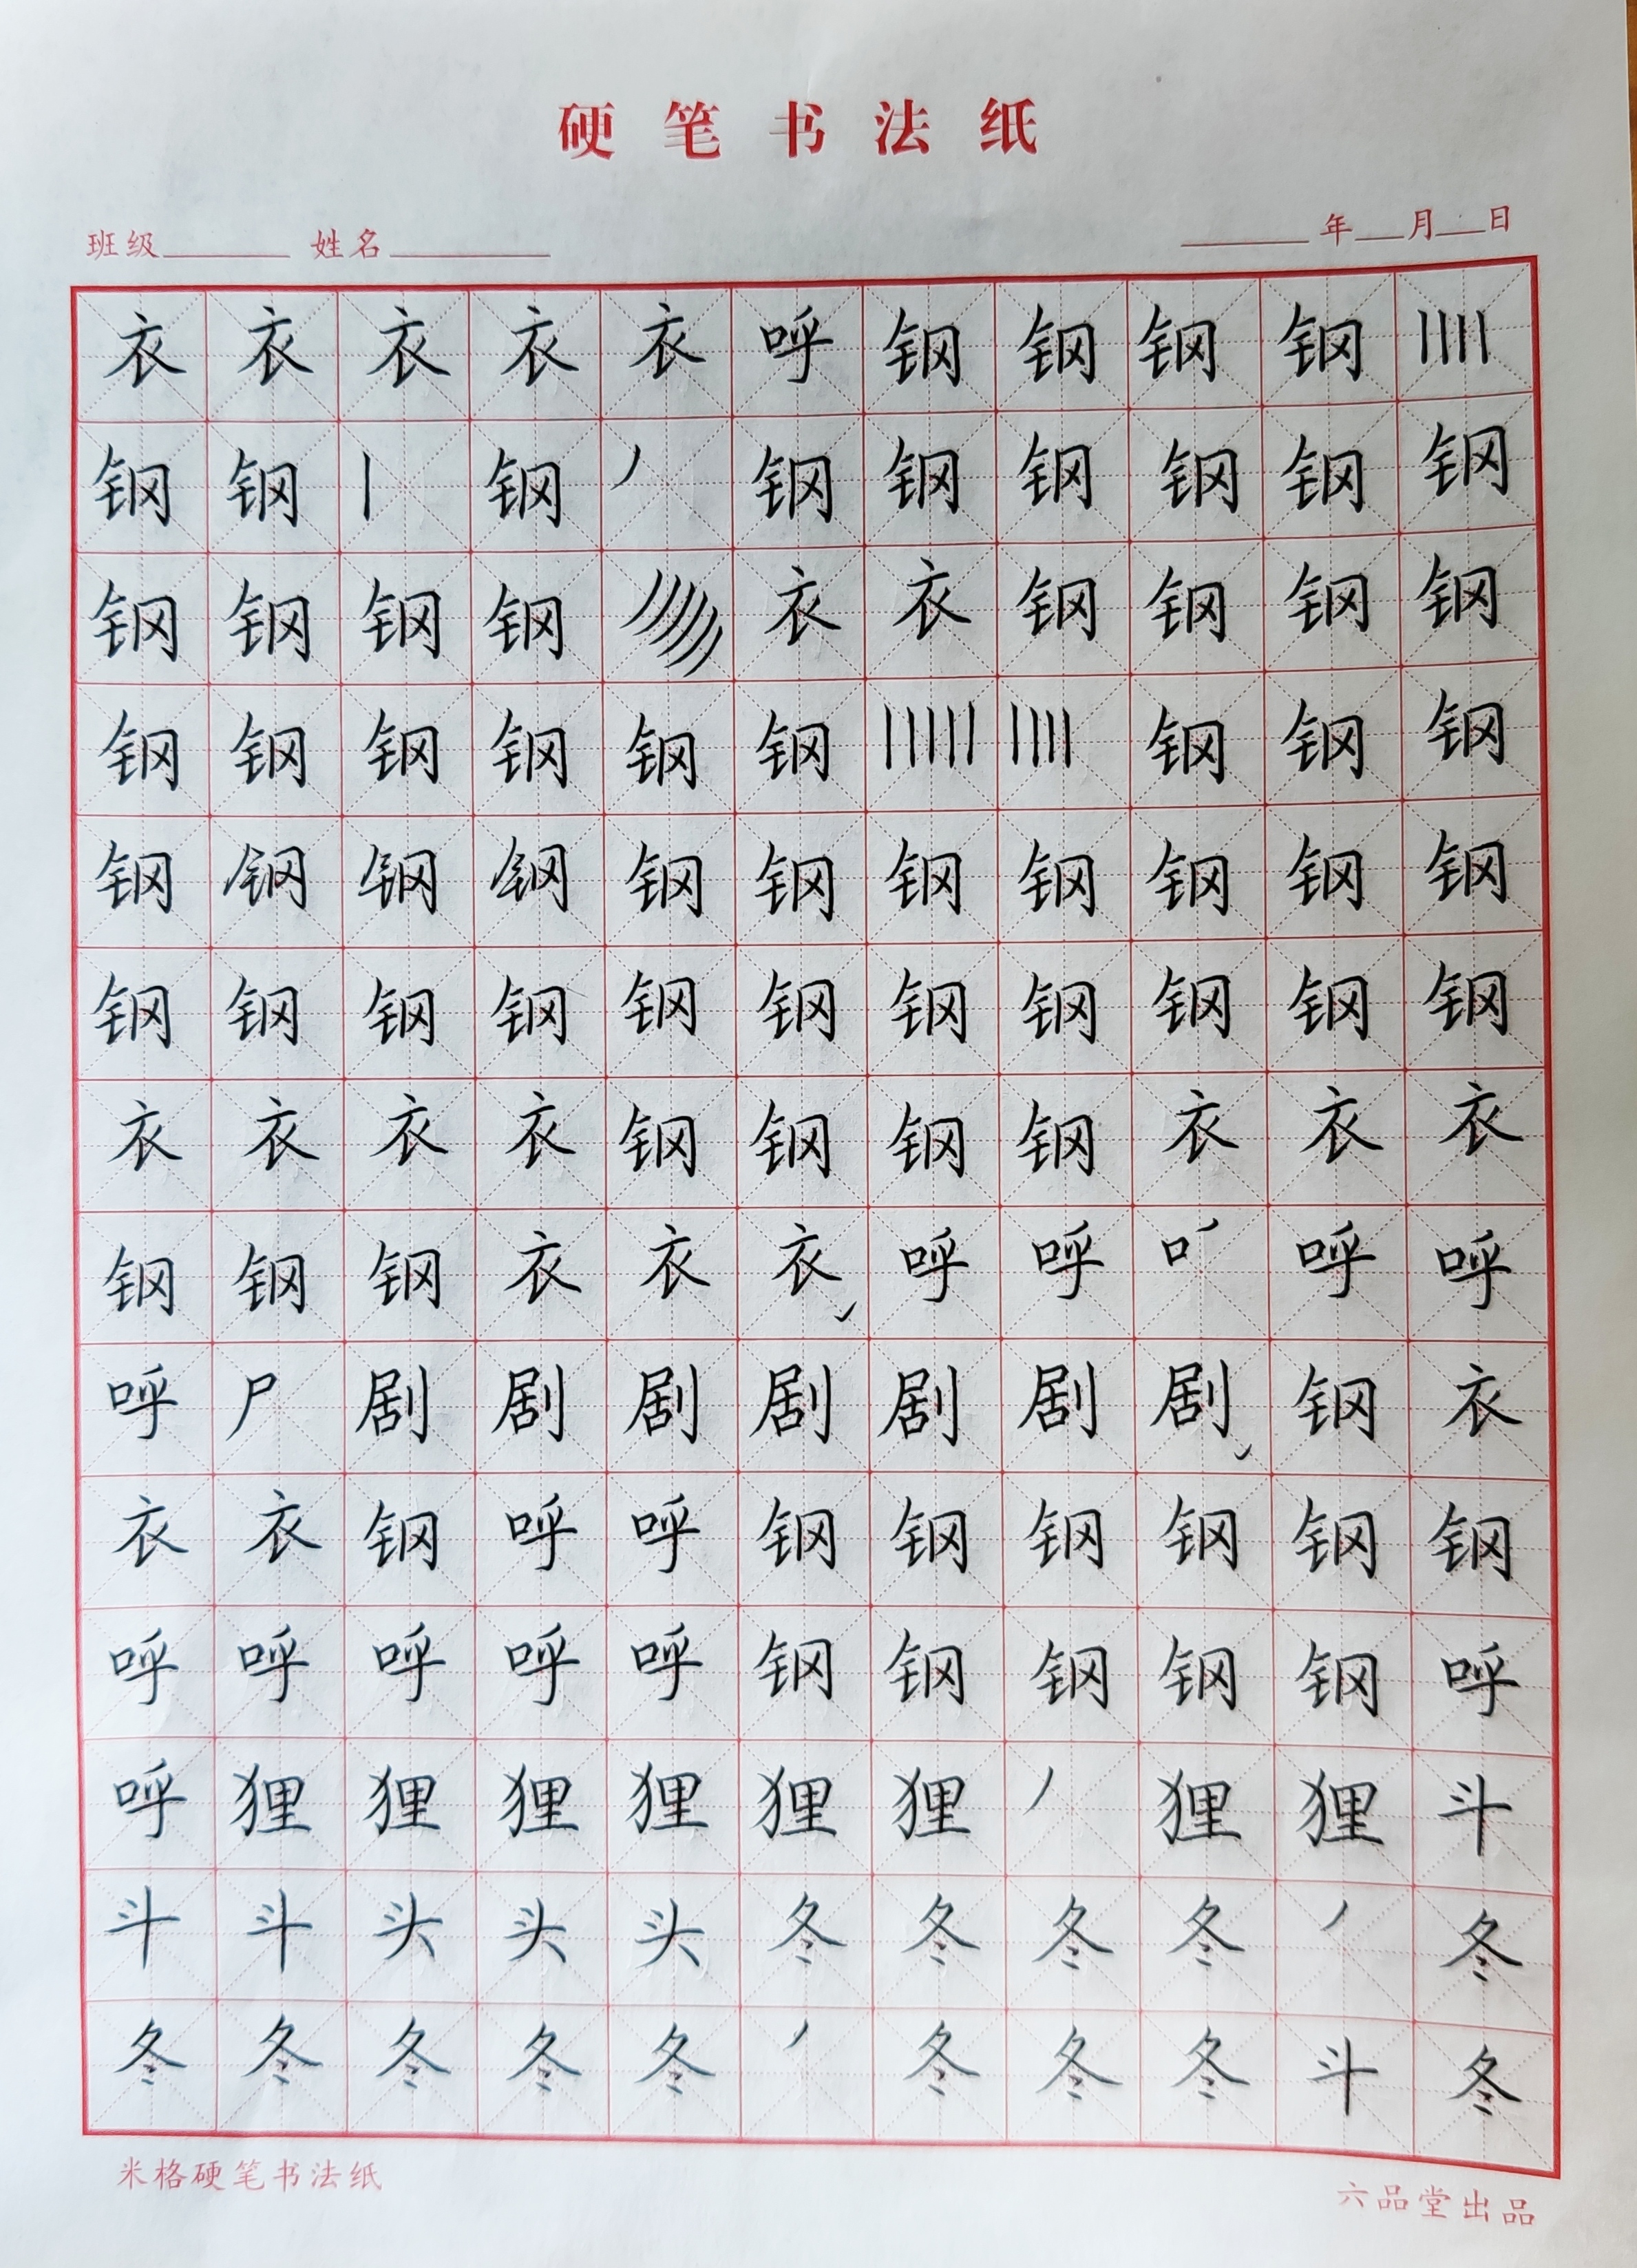 硬笔书法纸
班级 姓名 年 月 日
衣衣衣衣衣呼钢钢钢钢
钢钢钢钢钢钢钢钢钢
钢钢钢钢衣衣钢钢钢钢
钢钢钢钢钢钢钢钢钢
钢钢钢钢钢钢钢钢钢钢钢
钢钢钢钢钢钢钢钢钢钢钢
衣衣衣衣钢钢钢钢衣衣衣
钢钢钢衣衣衣呼呼口呼呼
呼尸剧剧剧剧剧剧剧钢衣
衣衣钢呼呼钢钢钢钢钢钢
呼呼呼呼呼钢钢钢钢钢呼
呼狸狸狸狸狸狸狸狸斗
斗斗头头头冬冬冬冬冬
冬冬冬冬冬冬冬冬斗冬
米格硬笔书法纸 六品堂出品